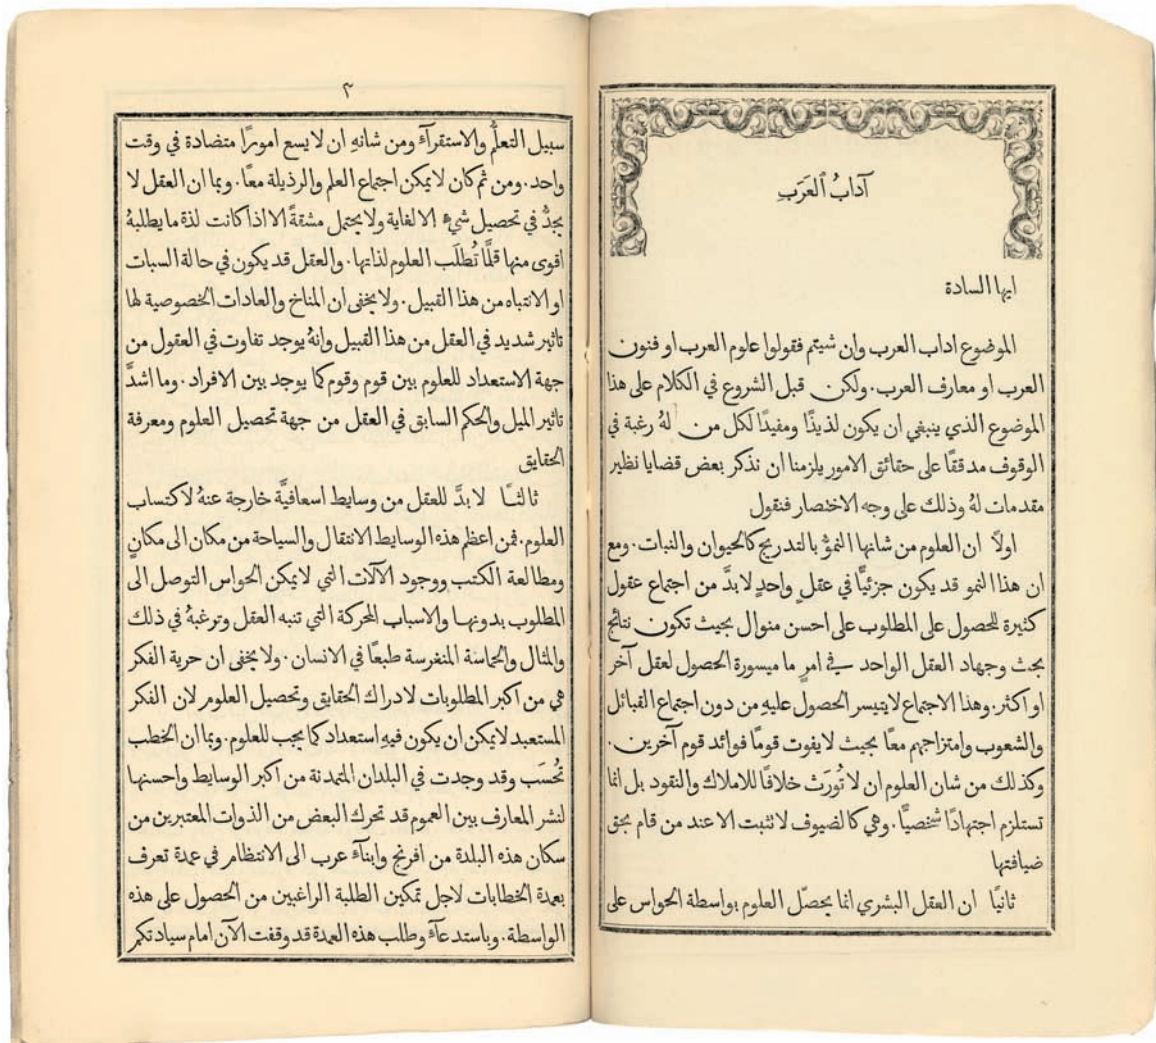 آدابُ ٱلعَرَبِ
ايها السادة
الموضوع اداب العرب وان شيتم فقولوا علوم العرب او فنون
العرب او معارف العرب. ولكن قبل الشروع في الكلام على هذا
الموضوع الذي ينبغي ان يكون لذيذًا ومفيدًا لكل من لهُ رغبة في
الوقوف مدققًا على حقائق الامور يلزمنا ان نذكر بعض قضايا نظير
مقدمات لهُ وذلك على وجه الاختصار فنقول
اولاً ان العلوم من شانها النموُّ بالتدريج كالحيوان والنبات. ومع
ان هذا النمو قد يكون جزئيًّا في عقلٍ واحدٍ لا بدَّ من اجتماع عقول
كثيرة للحصول على المطلوب على احسن منوال بحيث تكون نتائج
بحث وجهاد العقل الواحد في امرٍ ما ميسورة الحصول لعقل آخر
او اكثر. وهذا الاجتماع لا يتيسر الحصول عليهِ من دون اجتماع القبائل
والشعوب وامتزاجهم معًا بحيث لا يفوت قومًا فوائد قوم آخرين.
وكذلك من شان العلوم ان لا تُورَث خلافًا للاملاك والنقود بل انما
تستلزم اجتهادًا شخصيًّا. وهي كالضيوف لا تثبت الا عند من قام بحق
ضيافتها
ثانيًا ان العقل البشري انما يحصّل العلوم بواسطة الحواس على
٣
سبيل التعلُّم والاستقرآء ومن شانهِ ان لا يسع امورًا متضادة في وقت
واحد. ومن ثم كان لا يمكن اجتماع العلم والرذيلة معًا. وبما ان العقل لا
يجدُّ في تحصيل شيء الا لغاية ولا يحتمل مشقةً الا اذا كانت لذة ما يطلبهُ
اقوى منها قلَّما تُطلَب العلوم لذاتها. والعقل قد يكون في حالة السبات
او الانتباه من هذا القبيل. ولا يخفى ان المناخ والعادات الخصوصية لها
تاثير شديد في العقل من هذا القبيل وانهُ يوجد تفاوت في العقول من
جهة الاستعداد للعلوم بين قوم وقوم كما يوجد بين الافراد. وما اشدَّ
تاثير الميل والحكم السابق في العقل من جهة تحصيل العلوم ومعرفة
الحقايق
ثالثًا لا بدَّ للعقل من وسايط اسعافيَّة خارجة عنهُ لاكتساب
العلوم. فمن اعظم هذه الوسايط الانتقال والسياحة من مكان الى مكانٍ
ومطالعة الكتب ووجود الآلات التي لا يمكن الحواس التوصل الى
المطلوب بدونها والاسباب المحركة التي تنبه العقل وترغبهُ في ذلك
والمثال والحماسة المنغرسة طبعًا في الانسان. ولا يخفى ان حرية الفكر
هي من اكبر المطلوبات لادراك الحقايق وتحصيل العلوم لان الفكر
المستعبد لا يمكن ان يكون فيهِ استعداد كما يجب للعلوم. وبما ان الخطب
تُحسَب وقد وجدت في البلدان المتمدنة من اكبر الوسايط واحسنها
لنشر المعارف بين العموم قد تحرك البعض من الذوات المعتبرين من
سكان هذه البلدة من افرنج وابنآء عرب الى الانتظام في عمدة تعرف
بعمدة الخطابات لاجل تمكين الطلبة الراغبين من الحصول على هذه
الواسطة. وباستدعآء وطلب هذه العمدة قد وقفت الآن امام سيادتكم